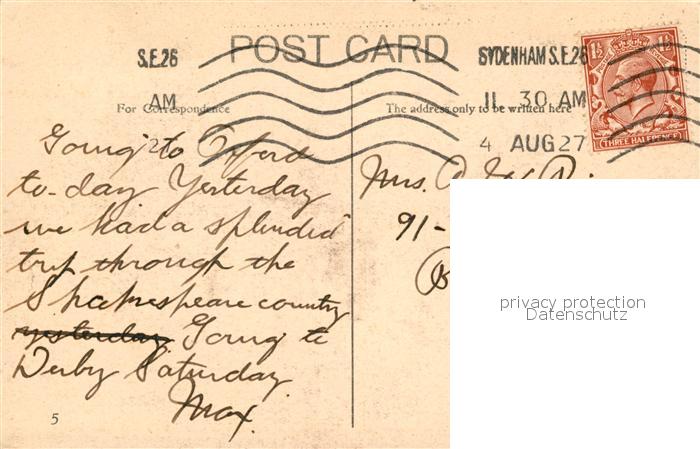 S.E.26
POST CARD
SYDENHAM S.E.26
AM
11 30 AM
2
4 AUG 27
1½ 1½
THREE HALFPENCE
For Correspondence
The address only to be written here
Going to Oxford
to-day Yesterday
we had a splendid
trip through the
Shakespeare country
yesterday Going to
Derby Saturday
Max.
5
Mrs.
91-
privacy protection
Datenschutz